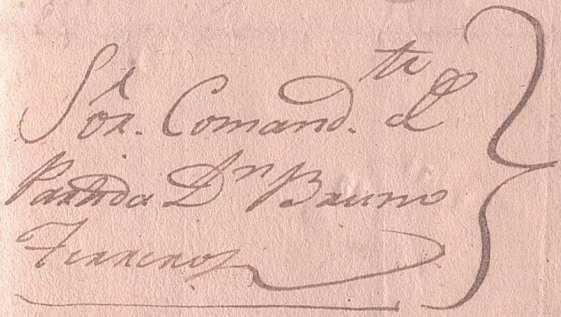 Sor. Comand.te de
Partida Dn Bruno
Terreros